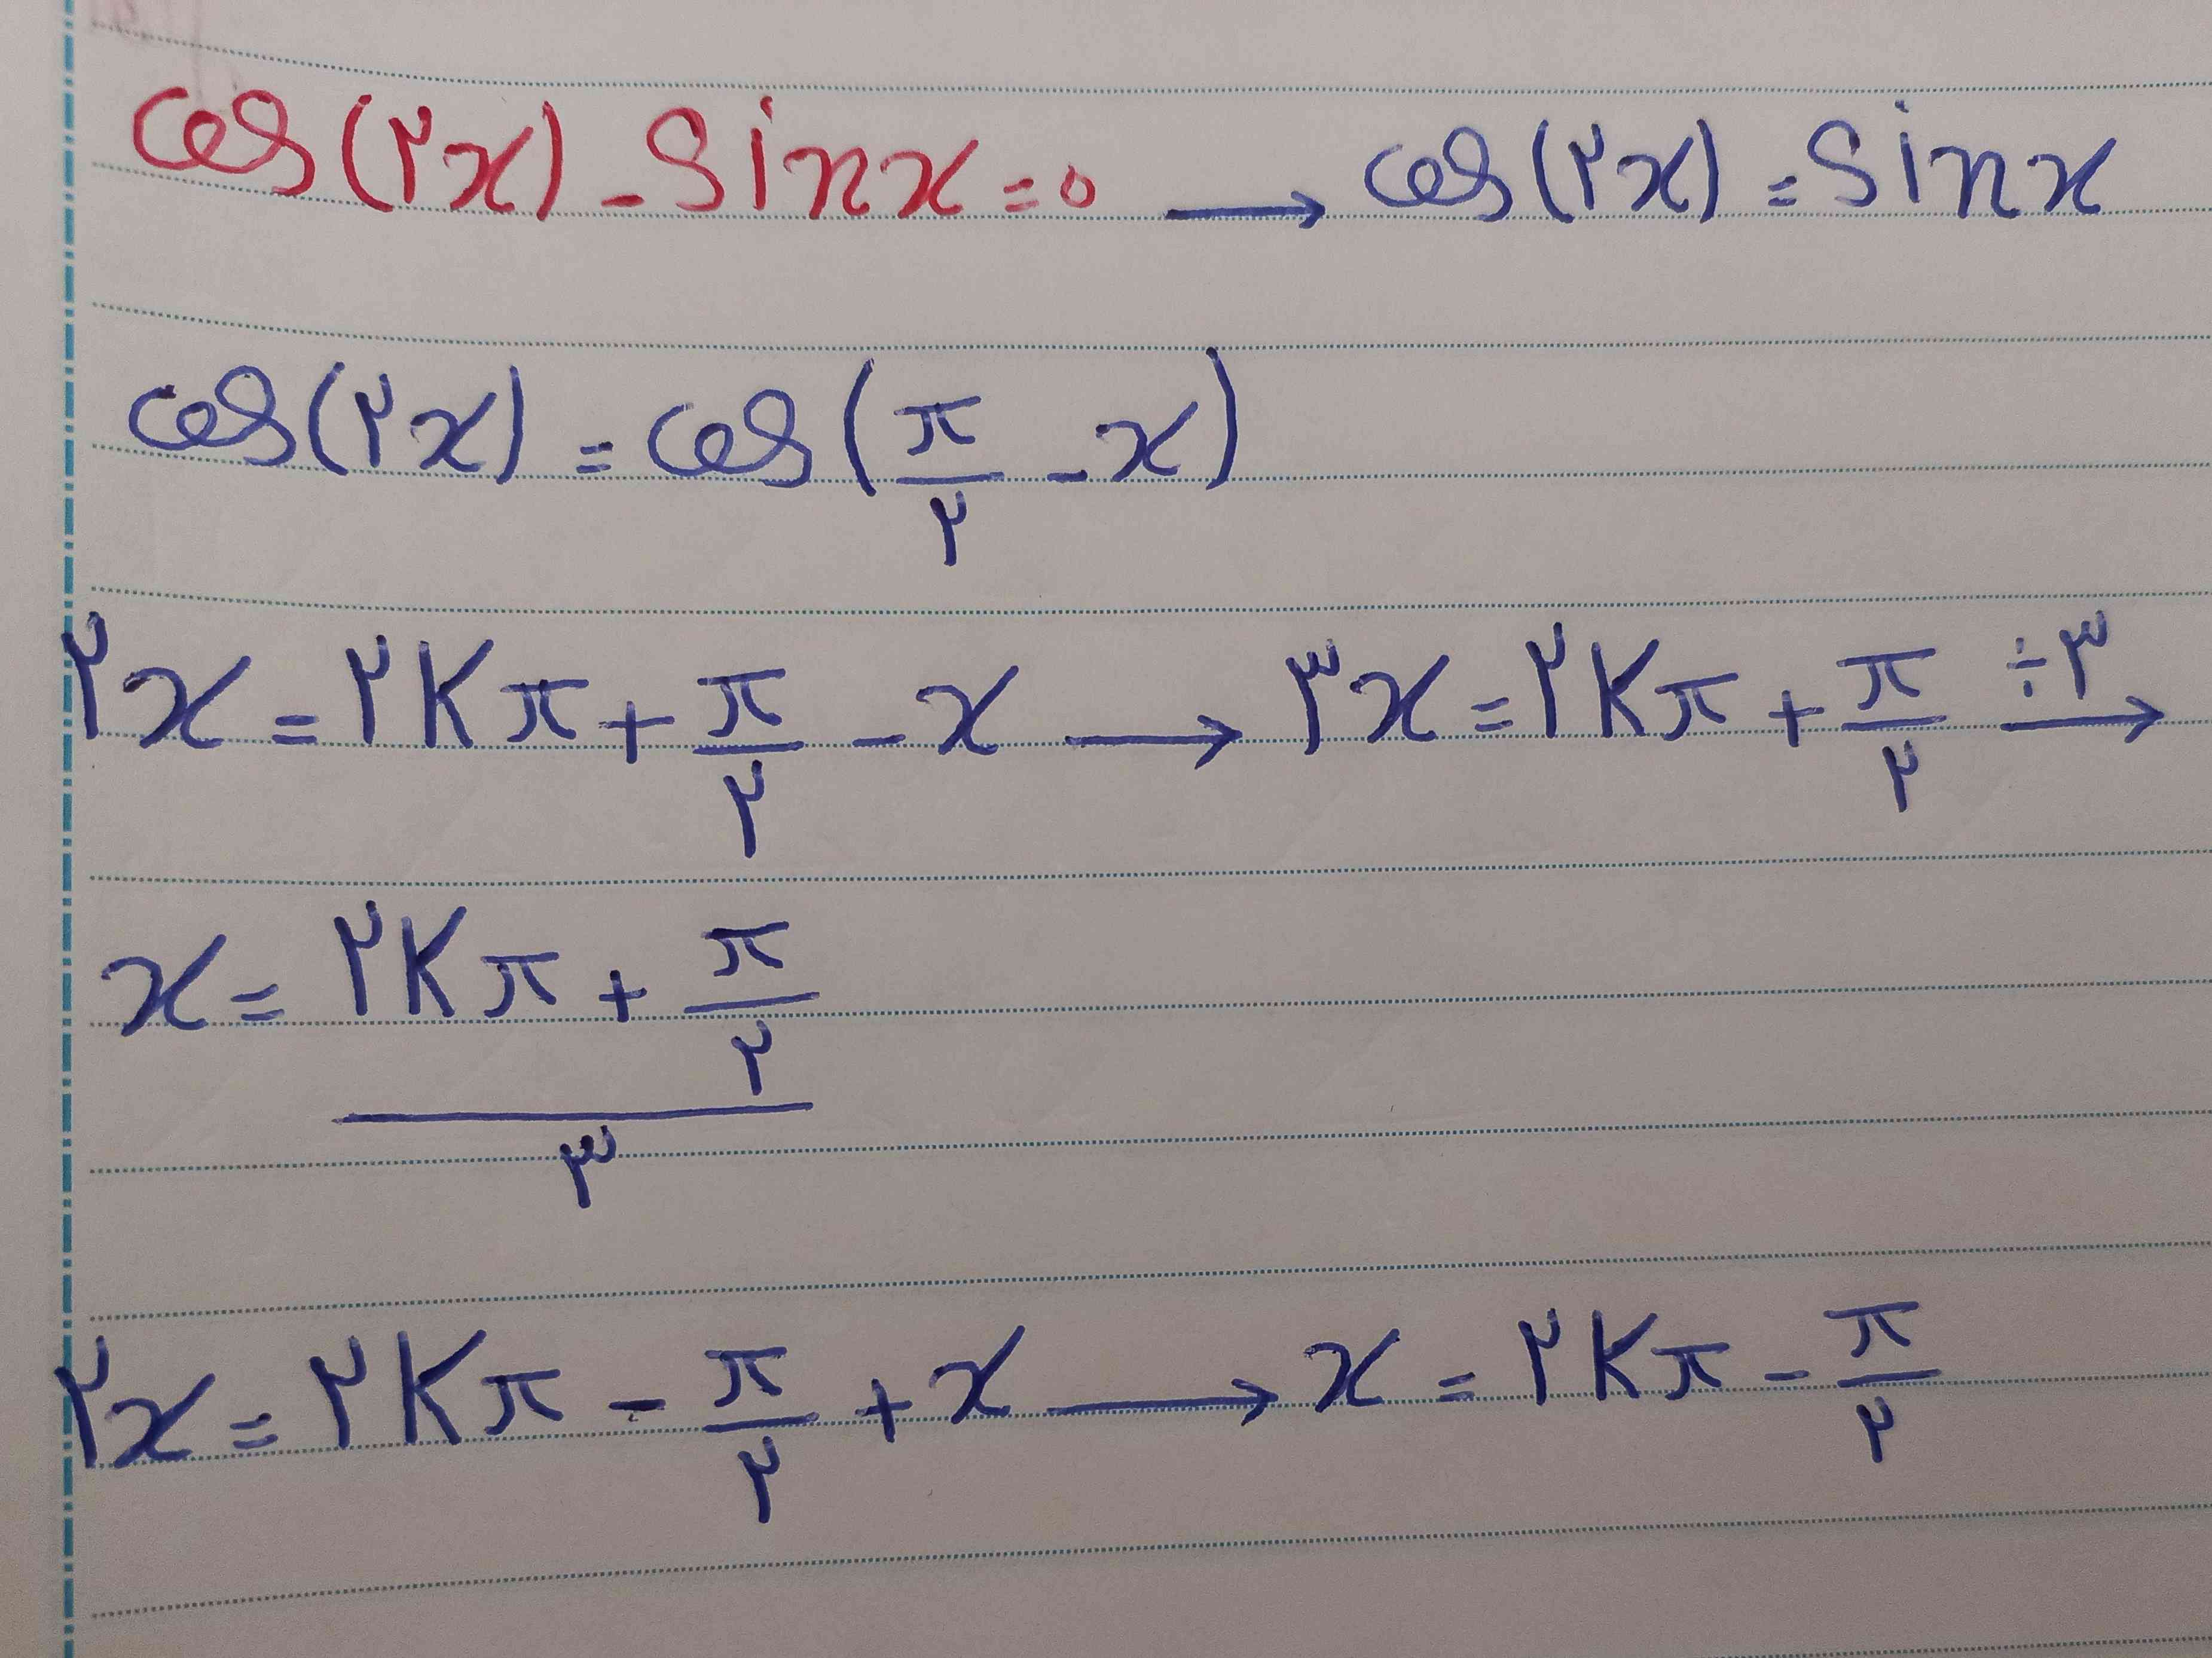 cos(۲x) - sinx = ۰ → cos(۲x) = sinx
cos(۲x) = cos(π/۲ - x)
۲x = ۲kπ + π/۲ - x → ۳x = ۲kπ + π/۲ ÷۳ →
x = (۲kπ + π/۲)/۳
۲x = ۲kπ - π/۲ + x → x = ۲kπ - π/۲